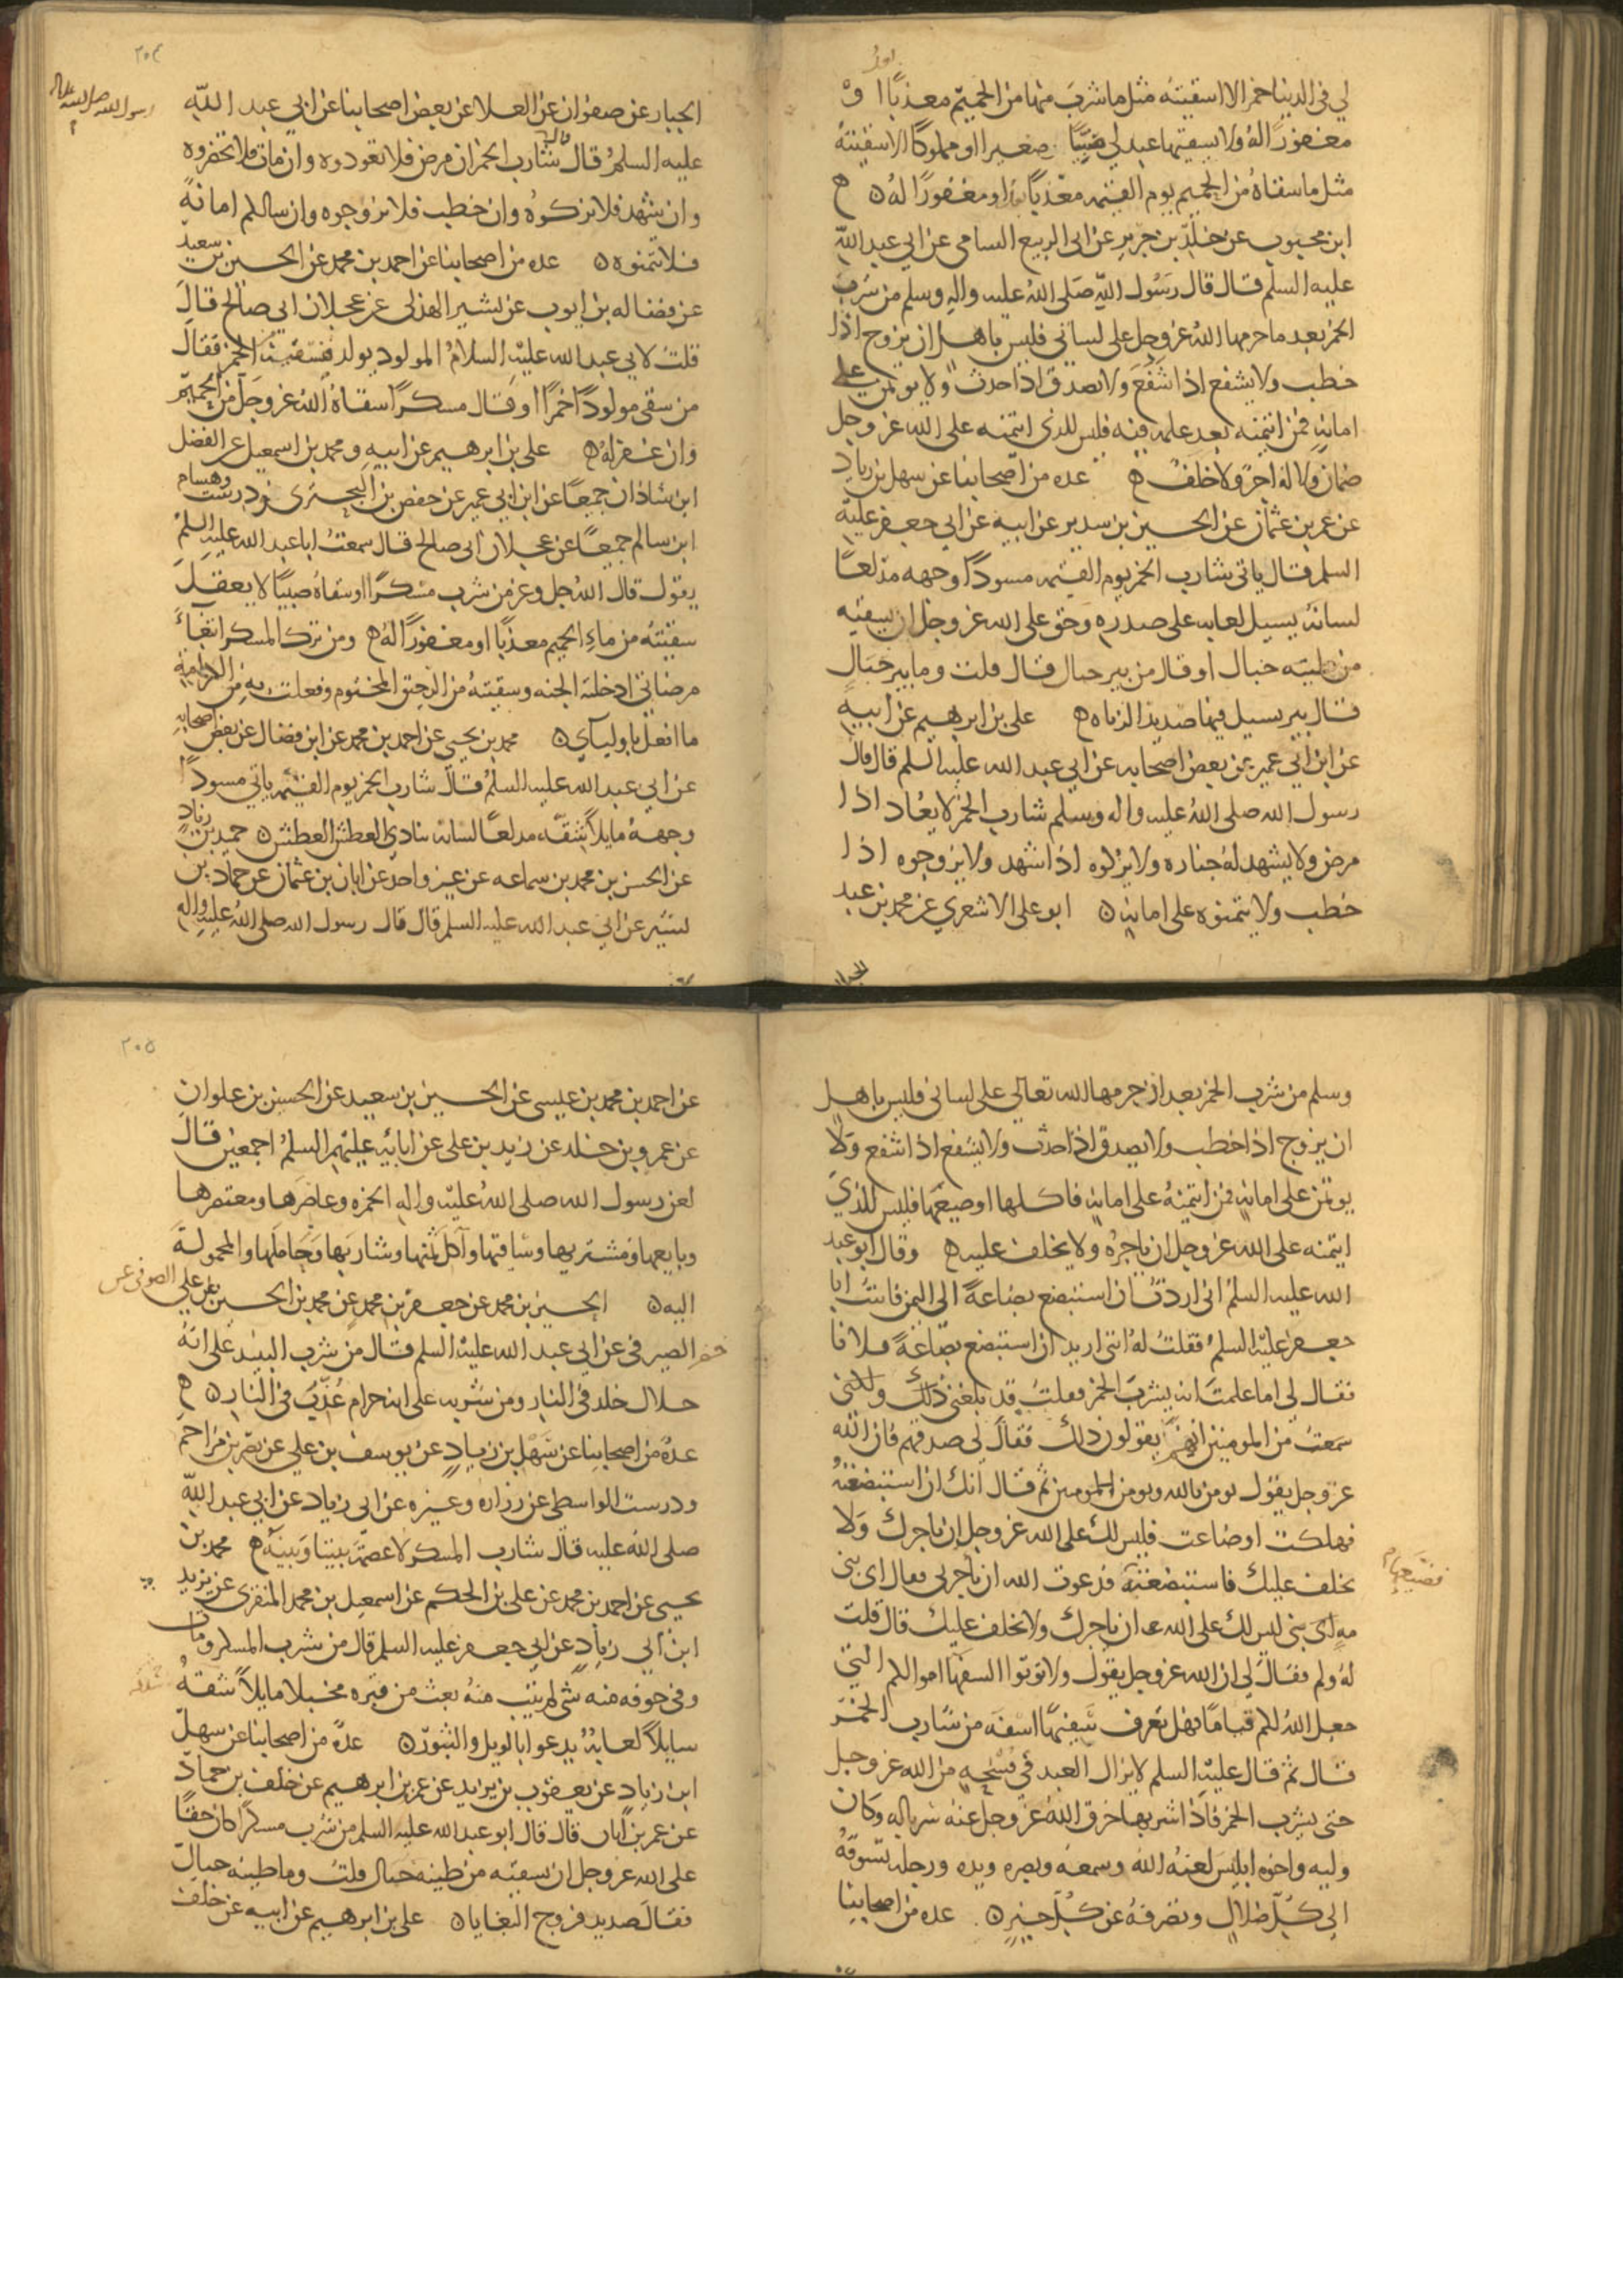 لي في الدنيا خمرا الا اسقيته مثل ما شرب منها من الحميم معذبا او
مغفورا له ولا يسقيها عبد لي صبيا صغيرا او مملوكا الا سقيته
مثل ما سقاه من الحميم يوم القيمه معذبا او مغفورا له
ابن محبوب عن خلد بن جرير عن ابي الربيع الشامي عن ابي عبد الله
عليه السلم قال قال رسول الله صلى الله عليه واله وسلم من شرب
الخمر بعد ما حرمها الله عز وجل على لساني فليس باهل ان يزوج اذا
خطب ولا يشفع اذا شفع ولا يصدق اذا حدث ولا يوتمن على
امانه فمن ائتمنه بعد علمه فيه فليس للذي ائتمنه على الله عز وجل
ضمان ولا له اجر ولا خلف عده من اصحابنا عن سهل بن زياد
عن عمر بن عثمان عن الحسين بن سدير عن ابيه عن ابي جعفر عليه
السلم قال ياتي شارب الخمر يوم القيمه مسودا وجهه مدلعا
لسانه يسيل لعابه على صدره وحق على الله عز وجل ان يسقيه
من طينه خبال او قال من بير خبال قال قلت وما بير خبال
قال بير يسيل فيها صديد الزناه علي بن ابرهيم عن ابيه
عن ابن ابي عمير عن بعض اصحابه عن ابي عبد الله عليه السلم قال قال
رسول الله صلى الله عليه واله وسلم شارب الخمر لا يعاد اذا
مرض ولا يشهد له جنازه ولا يزكوه اذا شهد ولا يزوجوه اذا
خطب ولا يتمنوه على امانه ابو علي الاشعري عن محمد بن عبد
الجبار
٢٠٤
الجبار عن صفوان عن العلا عن بعض اصحابنا عن ابي عبد الله
عليه السلم قال قال شارب الخمر ان مرض فلا تعودوه وان مات فلا تحضروه
رسول الله صلى الله عليه واله
وان شهد فلا تزكوه وان خطب فلا تزوجوه وان سالكم امانه
فلا تتمنوه عده من اصحابنا عن احمد بن محمد عن الحسين بن سعيد
عن فضاله بن ايوب عن بشير الهذلي عن عجلان ابي صالح قال
قلت لابي عبد الله عليه السلام المولود يولد فنسقيه الخمر فقال
من سقى مولودا خمرا او قال مسكرا سقاه الله عز وجل من الحميم
وان غفر له علي بن ابرهيم عن ابيه و محمد بن اسمعيل عن الفضل
ابن شاذان جميعا عن ابن ابي عمير عن حفص بن البختري ودرست وهشام
ابن سالم جميعا عن عجلان ابي صالح قال سمعت ابا عبد الله عليه السلم
يقول قال الله جل وعز من شرب مسكرا او سقاه صبيا لا يعقل
سقيته من ماء الحميم معذبا او مغفورا له ومن ترك المسكر ابتغاء
مرضاتي ادخلته الجنه وسقيته من الرحيق المختوم وفعلت به من الكرامة
ما افعل باوليآي محمد بن يحيى عن احمد بن محمد عن ابن فضال عن بعض اصحابه
عن ابي عبد الله عليه السلم قال شارب الخمر يوم القيمه ياتي مسودا
وجهه مايلا شقه مدلعا لسانه ينادي العطش العطش حميد بن زياد
عن الحسن بن محمد بن سماعه عن غير واحد عن ابان بن عثمان عن حماد بن
بشير عن ابي عبد الله عليه السلم قال قال رسول الله صلى الله عليه واله
وسلم من شرب الخمر بعد ان حرمها الله تعالى على لساني فليس باهل
ان يزوج اذا خطب ولا يصدق اذا حدث ولا يشفع اذا شفع ولا
يوتمن على امانه فمن ائتمنه على امانه فاكلها او ضيعها فليس للذي
ائتمنه على الله عز وجل ان ياجره ولا يخلف عليه وقال ابو عبد
الله عليه السلم اني اردت ان استبضع بضاعة الى اليمن فاتيت ابا
جعفر عليه السلم فقلت له انني اريد ان استبضع بضاعة فلانا
فقال لي اما علمت انه يشرب الخمر فقلت قد بلغني ذلك ولكني
سمعت من المومنين انهم يقولون ذلك فقال لي صدقهم فان الله
عز وجل يقول يومن بالله ويومن للمومنين ثم قال انك ان استبضعته
فهلكت او ضاعت فليس لك على الله عز وجل ان ياجرك ولا
يخلف عليك فاستبضعته فضيعها فدعوت الله ان ياجرني فقال اي بني
مه اي بني ليس لك على الله ان ياجرك ولا يخلف عليك قال قلت
له ولم فقال لي ان الله عز وجل يقول ولا توتوا السفها اموالكم التي
جعل الله لكم قياما فهل تعرف سفيها اسفه من شارب الخمر
قال ثم قال عليه السلم لا يزال العبد في فسحه من الله عز وجل
حتى يشرب الخمر فاذا شربها خرق الله عز وجل عنه سرباله وكان
وليه واخوه ابليس لعنه الله وسمعه وبصره ويده ورجله يسوقه
الى كل ضلال ويصرفه عن كل خير عده من اصحابنا
٢٠٥
عن احمد بن محمد بن عيسى عن الحسين بن سعيد عن الحسين بن علوان
عن عمرو بن خلد عن زيد بن علي عن ابايه عليهم السلم اجمعين قال
لعن رسول الله صلى الله عليه واله الخمره وعاصرها ومعتصرها
وبايعها ومشتريها وساقيها وآكل ثمنها وشاربها وحاملها والمحمولة
اليه الحسين بن محمد عن جعفر بن محمد عن محمد بن الحسين عن علي الصوفي عن
خضر الصيرفي عن ابي عبد الله عليه السلم قال من شرب النبيذ على انه
حلال خلد في النار ومن شربه على انه حرام عذب في النار
عدة من اصحابنا عن سهل بن زياد عن يوسف بن علي عن نصر بن مزاحم
ودرست الواسطي عن زراره وغيره عن ابي زياد عن ابي عبد الله
صلى الله عليه قال شارب المسكر لا عصمة بيننا وبينه محمد بن
يحيى عن احمد بن محمد عن علي بن الحكم عن اسمعيل بن محمد المنقري عن يزيد
ابن ابي زياد عن ابي جعفر عليه السلم قال من شرب المسكر ومات
وفي جوفه منه شي لم يتب منه بعث من قبره مخبلا مايلا شقه
سايلا لعابه يدعوا بالويل والثبور عدة من اصحابنا عن سهل
ابن زياد عن يعقوب بن يزيد عن عمر بن ابرهيم عن خلف بن حماد
عن عمر بن ابان قال قال ابو عبد الله عليه السلم من شرب مسكرا كان حقا
على الله عز وجل ان يسقيه من طينه خبال قلت وما طينه خبال
فقال صديد فروج البغايا علي بن ابرهيم عن ابيه عن خلف